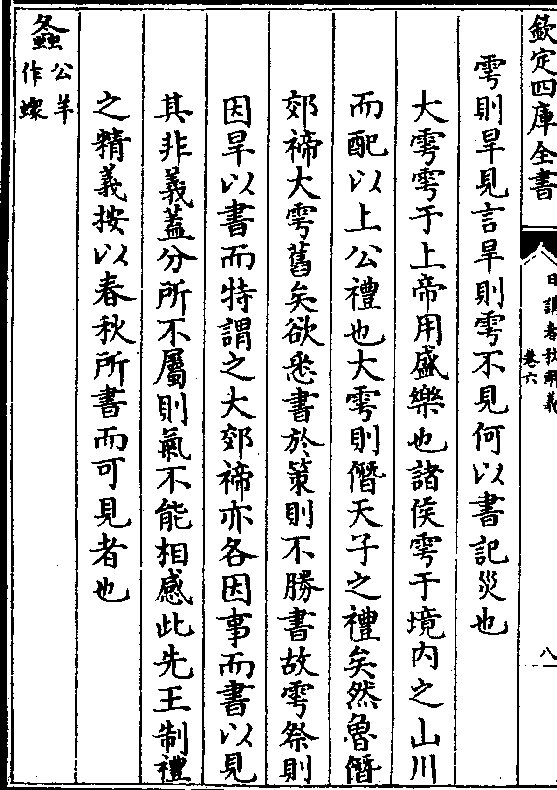 欽定四庫全書
日講春秋解義
卷六
八
雩則旱見言旱則雩不見何以書記災也
大雩雩于上帝用盛樂也諸侯雩于境內之山川
而配以上公禮也大雩則僭天子之禮矣然魯僭
郊禘大雩舊矣欲悉書於策則不勝書故雩祭則
因旱以書而特謂之大郊禘亦各因事而書以見
其非義蓋分所不屬則氣不能相感此先王制禮
之精義按以春秋所書而可見者也
螽
公羊
作蝝